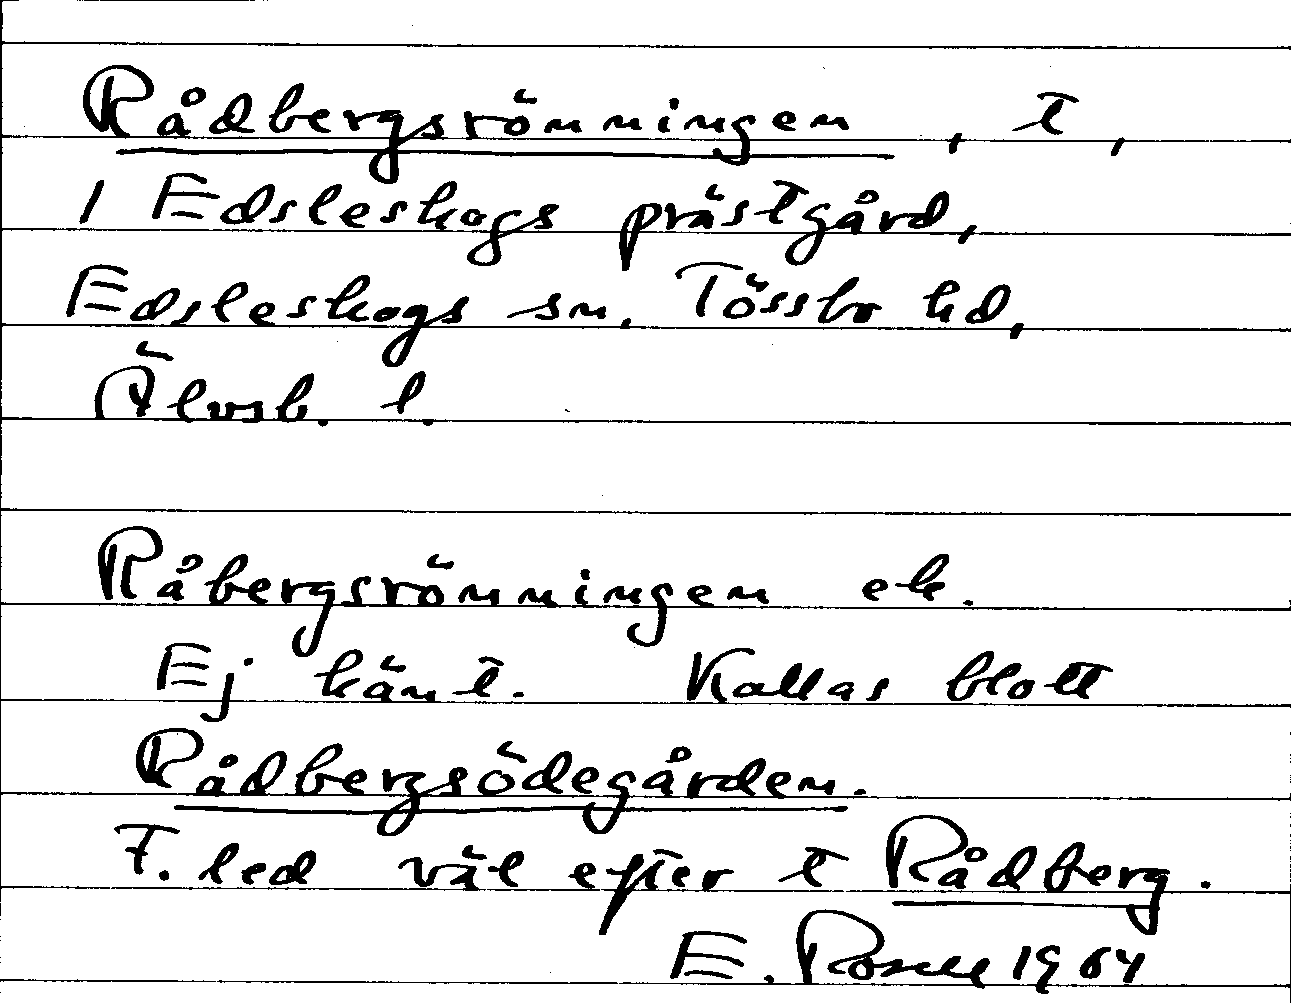 Rådbergsrönningen, t,
i Edsleskogs prästgård,
Edsleskogs sn. Tössbo hd,
Älvsb. l.
Råbergsrönningen ek.
Ej känt. Kallas blott
Rådbergsödegården.
F. led väl efter t Rådberg.
E. Rosell 1964